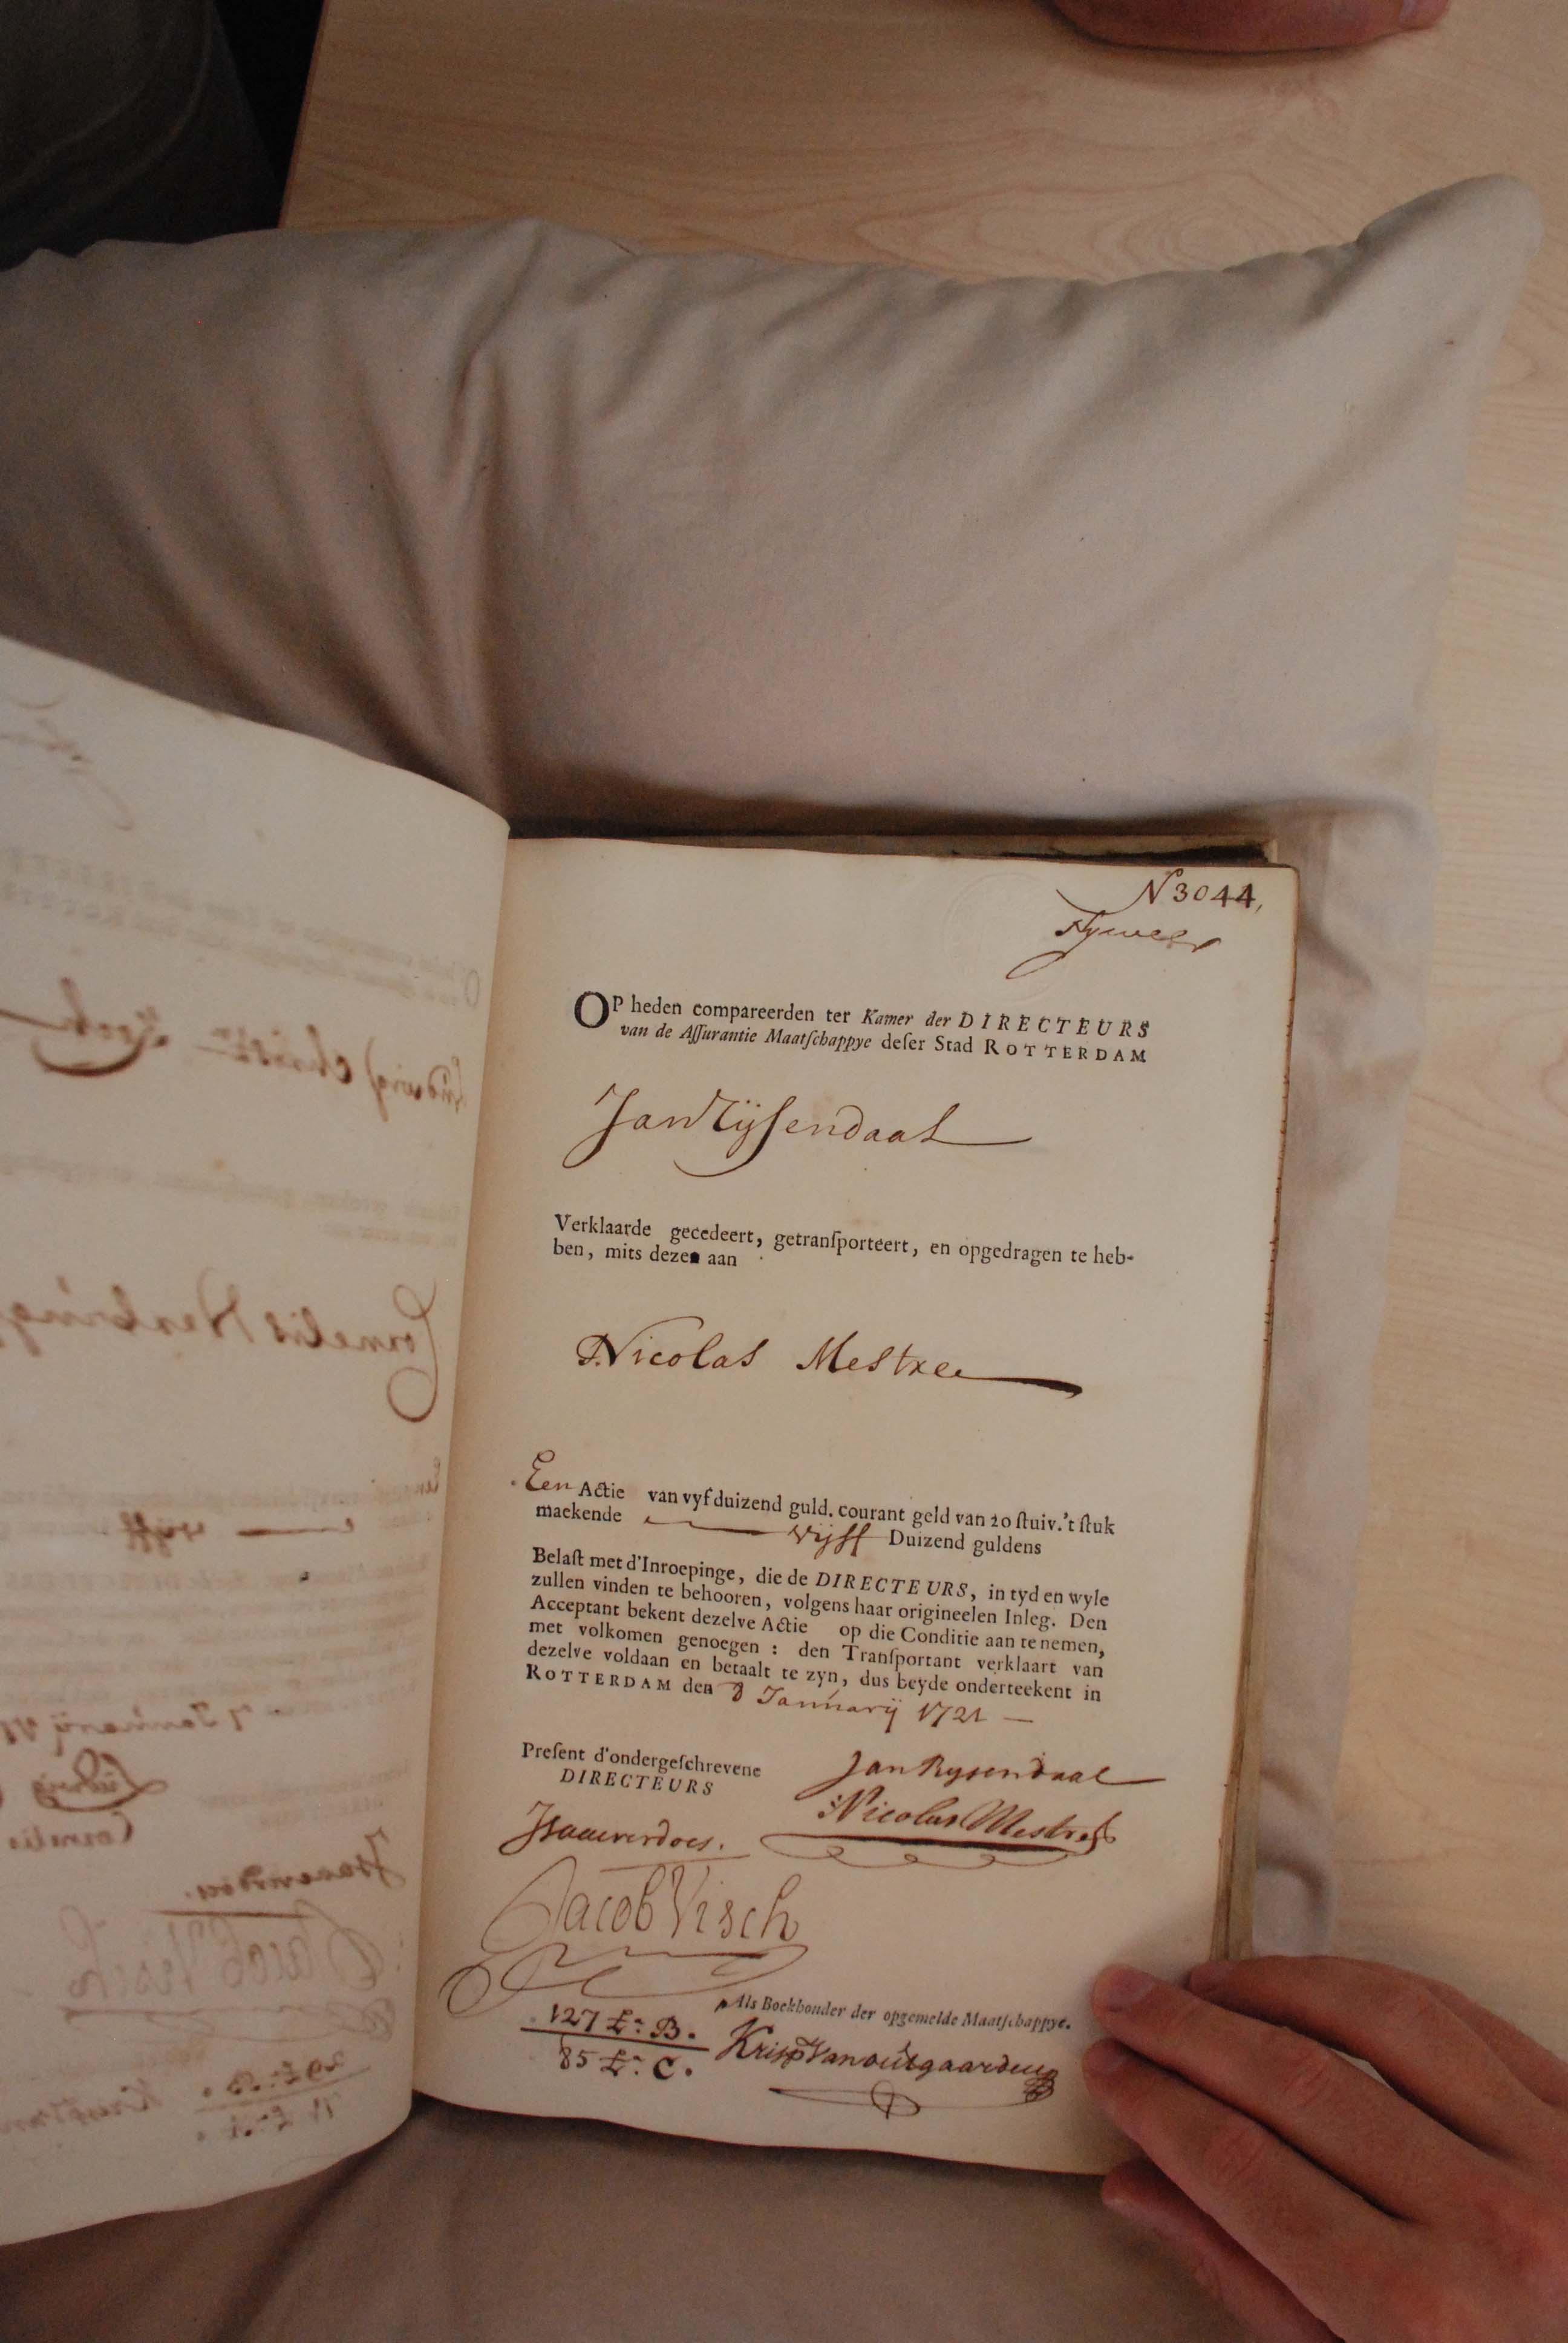 N 3044,
OP heden compareerden ter Kamer der DIRECTEURS
van de Aſſurantie Maatſchappye deſer Stad ROTTERDAM
Jan Rijsendaal
Verklaarde gecedeert, getranſporteert, en opgedragen te heb-
ben, mits dezen aan
Nicolas Mestre
Een Actie van vyf duizend guld. courant geld van 20 ſtuiv. 't ſtuk
maekende vijff Duizend guldens
Belaſt met d'Inroepinge, die de DIRECTEURS, in tyd en wyle
zullen vinden te behooren, volgens haar origineelen Inleg. Den
Acceptant bekent dezelve Actie op die Conditie aan te nemen,
met volkomen genoegen : den Tranſportant verklaart van
dezelve voldaan en betaalt te zyn, dus beyde onderteekent in
ROTTERDAM den 8 Januarij 1721
Preſent d'ondergeſchrevene
DIRECTEURS
Jan Rysendaal
Nicolas Mestre
Isaac verdoes.
Jacob Visch
Als Boekhouder der opgemelde Maatſchappye.
127 £: B.
85 £: C.